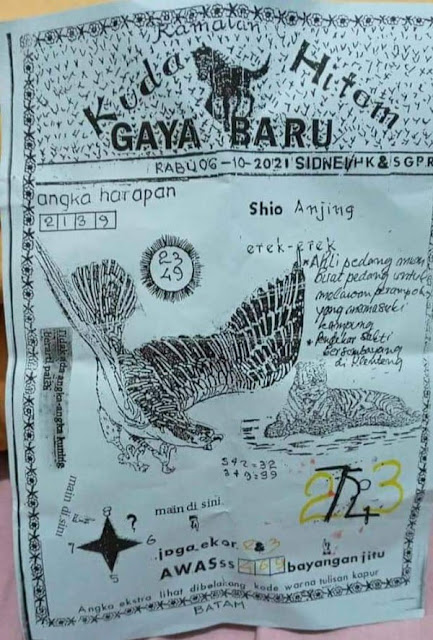 Ramalan
Kuda Hitam
GAYA BARU
RABU 06-10-2021 SIDNEY/HK & SGPR
angka harapan
2139
Shio Anjing
erek-erek
23
49
* Ahli pedang
buat pedang untuk
melawan perampok
yang memasuki
kampung
* Pendekar sakti
bersembayang
di Klenteng
main di sini
8
7 6
5
?
main di sini
jaga ekor 2 & 3
AWASss bayangan jitu
Angka ekstra lihat dibelakang kode warna tulisan kapur
BATAM